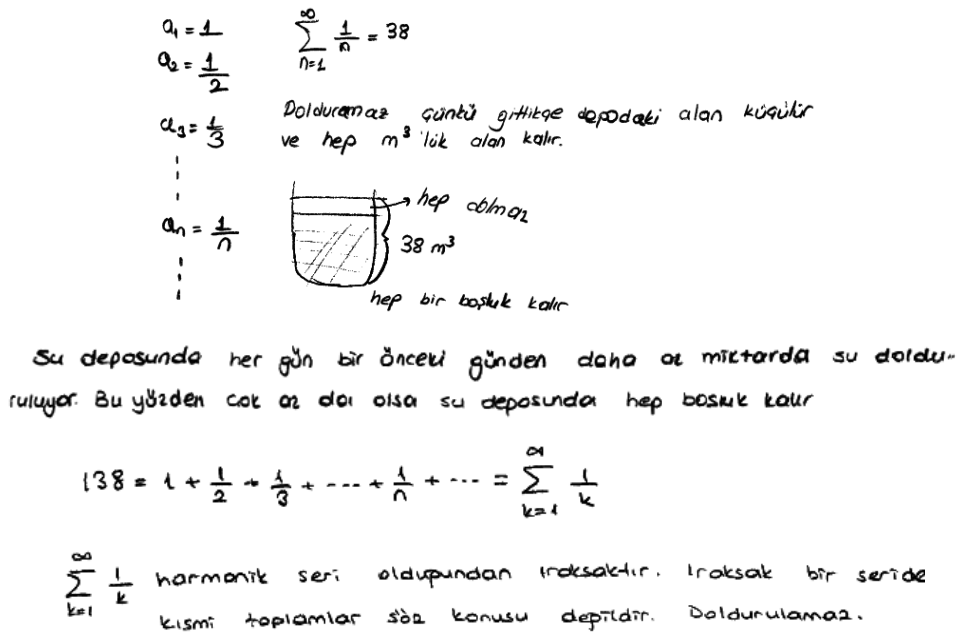 a₁ = 1
∑_{n=1}^{∞} 1/n = 38
a₂ = 1/2
a₃ = 1/3
Dolduramaz çünkü gittikçe depodaki alan küçülür
ve hep m³'lük alan kalır.
aₙ = 1/n
hep
38 m³
hep bir boşluk kalır
Su deposunda her gün bir önceki günden daha az miktarda su doldu-
ruluyor. Bu yüzden çok az da olsa su deposunda hep boşluk kalır
138 = 1 + 1/2 + 1/3 + ... + 1/n + ... = ∑_{k=1}^{∞} 1/k
∑_{k=1}^{∞} 1/k harmonik seri olduğundan ıraksaktır. Iraksak bir seride
kısmi toplamlar söz konusu değildir. Doldurulamaz.